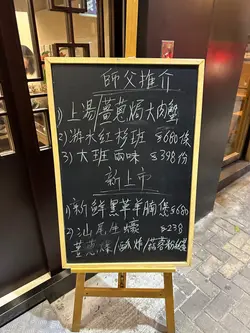 師父推介
1) 上湯/薑蔥焗大肉蟹
2) 游水紅杉班 $680條
3) 大班兩味 $398份
新上市
1) 新鮮黑草羊腩煲 $680
2) 汕尾生蠔 $238
薑蔥爆/酥炸/蒜蓉粉絲蒸